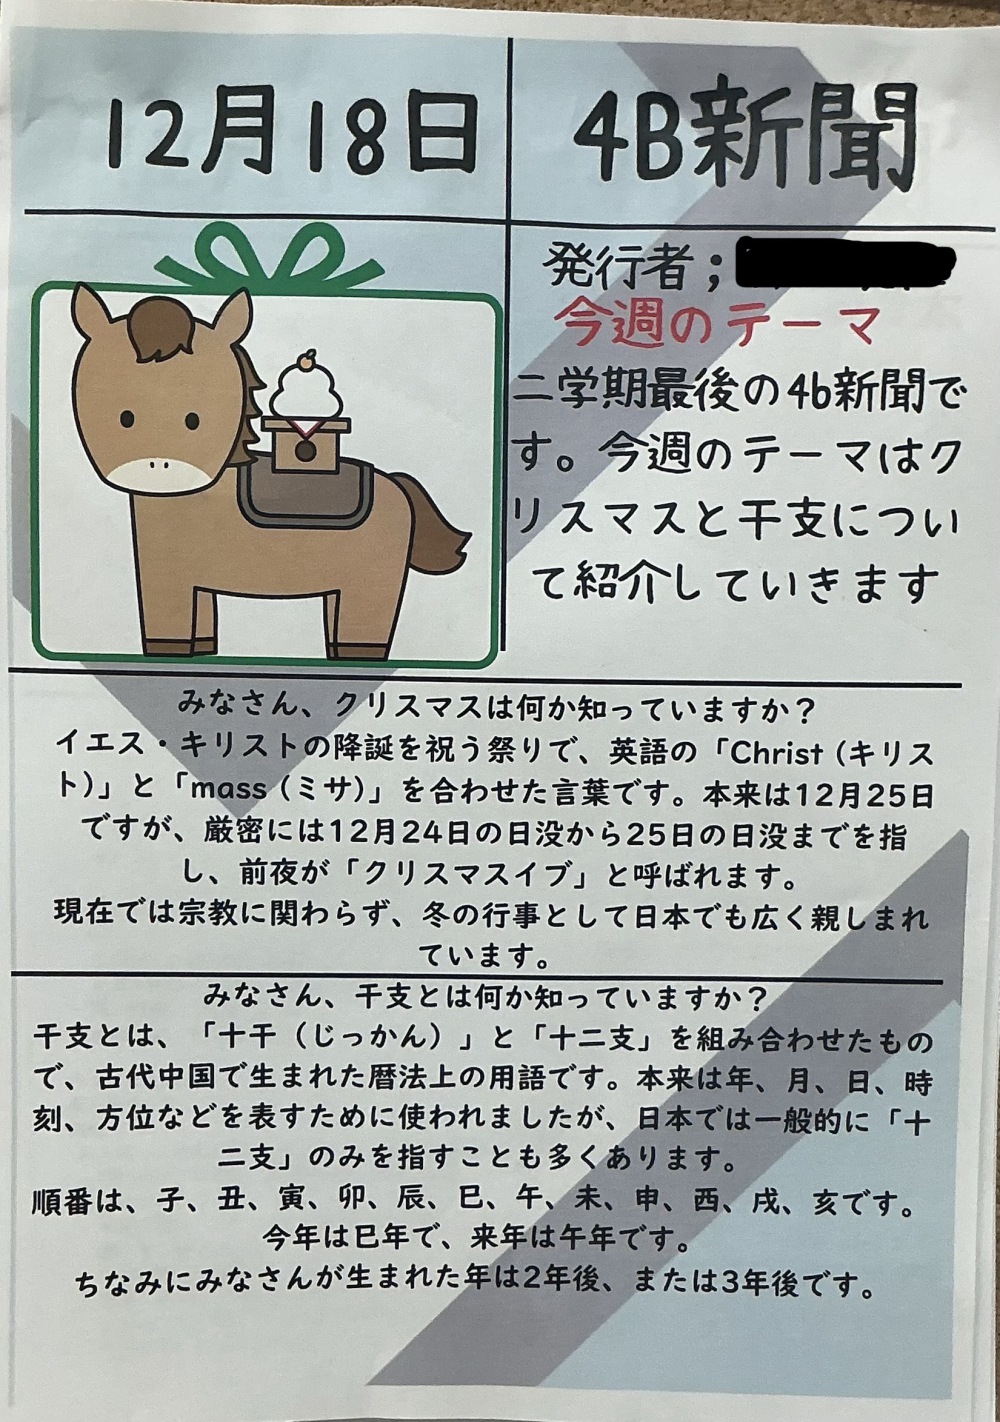 12月18日
4B新聞
発行者；
今週のテーマ
二学期最後の4b新聞で
す。今週のテーマはク
リスマスと干支につい
て紹介していきます
みなさん、クリスマスは何か知っていますか？
イエス・キリストの降誕を祝う祭りで、英語の「Christ（キリス
ト）」と「mass（ミサ）」を合わせた言葉です。本来は12月25日
ですが、厳密には12月24日の日没から25日の日没までを指
し、前夜が「クリスマスイブ」と呼ばれます。
現在では宗教に関わらず、冬の行事として日本でも広く親しまれ
ています。
みなさん、干支とは何か知っていますか？
干支とは、「十干（じっかん）」と「十二支」を組み合わせたもの
で、古代中国で生まれた暦法上の用語です。本来は年、月、日、時
刻、方位などを表すために使われましたが、日本では一般的に「十
二支」のみを指すことも多くあります。
順番は、子、丑、寅、卯、辰、巳、午、未、申、酉、戌、亥です。
今年は巳年で、来年は午年です。
ちなみにみなさんが生まれた年は2年後、または3年後です。